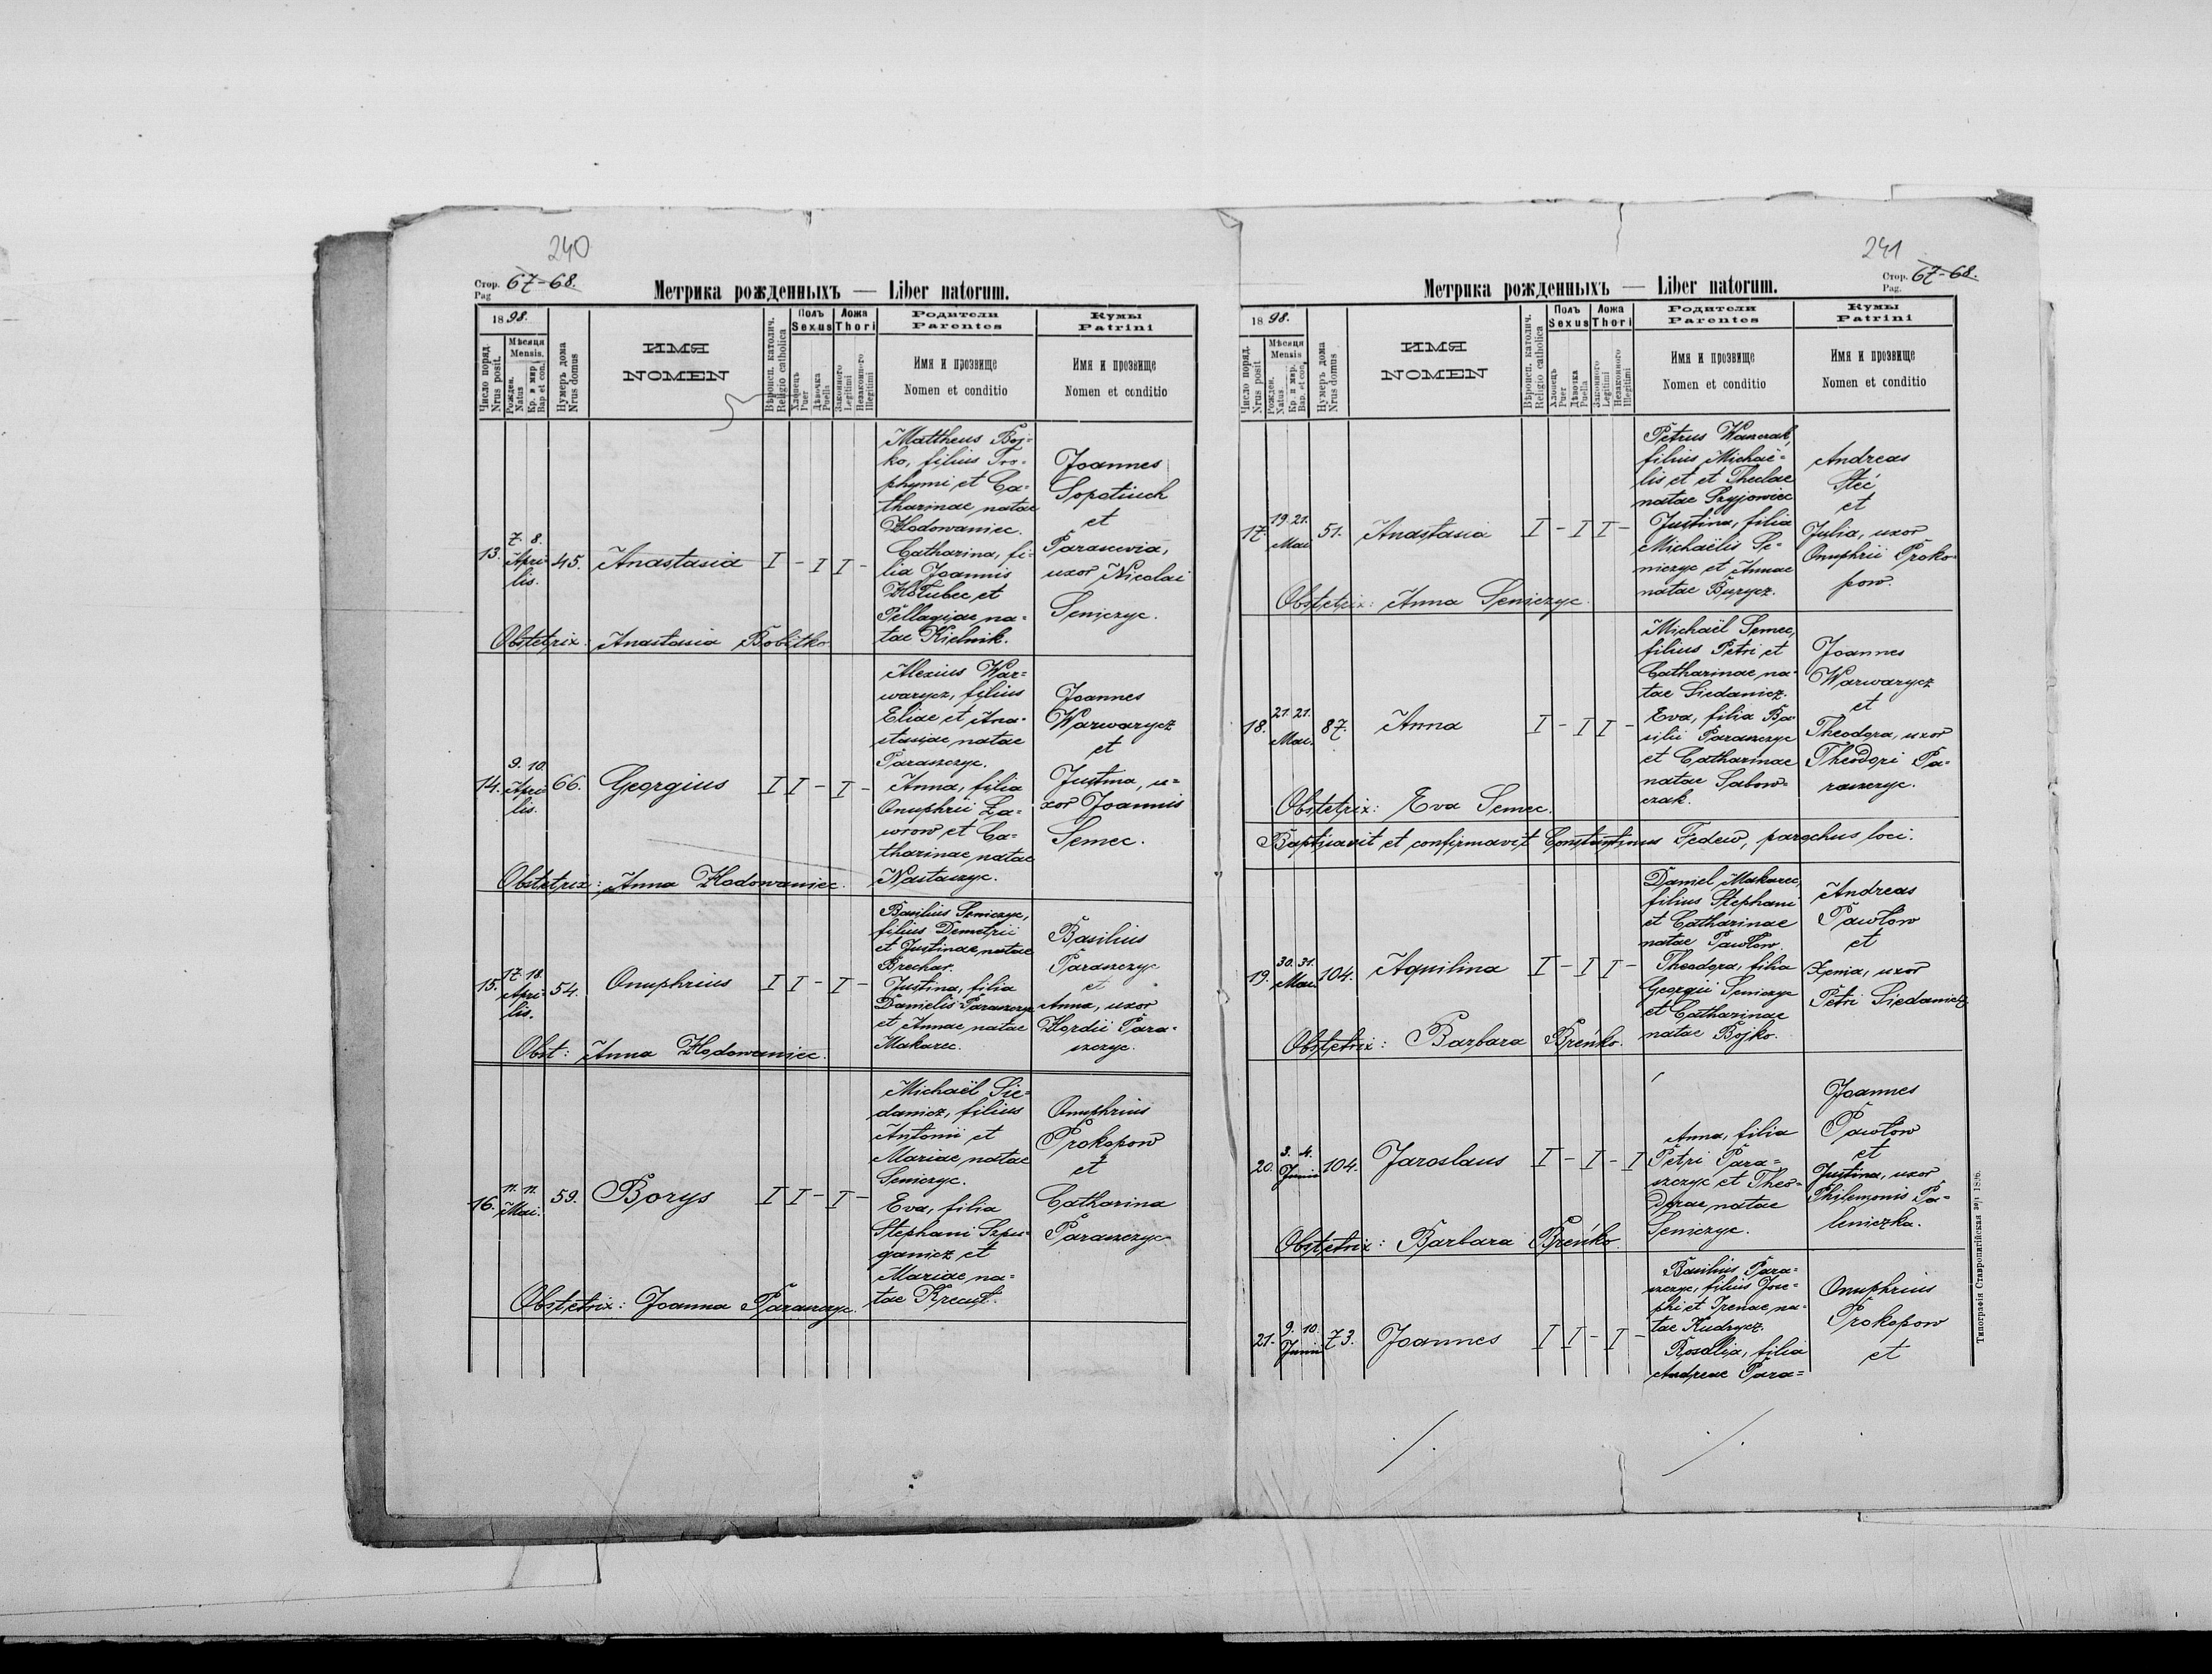 240
Стор. 67-68.
Pag
Метрика рожденныхъ — Liber natorum.
1898.
Число поряд.
Nrus posit.
Мѣсяця
Mensis.
Рожден.
Natus
Кр. и мир
Bap et con.
Нумеръ дома
Nrus domus
ИМЯ
NOMEN
Вѣроисп. католич.
Religio catholica
Полъ
Sexus
Хлопець
Puer
Дѣвочка
Puella
Ложа
Thori
Законного
Legitimi
Незаконного
Illegitimi
Родители
Parentes
Имя и прозвище
Nomen et conditio
Кумы
Patrini
Имя и прозвище
Nomen et conditio
13.
7. 8.
Apri-
lis.
45.
Anastasia
I - I I -
Mattheus Boj-
ko, filius Tro-
phymi et Ca-
tharinae natae
Hodowaniec.
Catharina, fi-
lia Joannis
Hołubec et
Pellagiae na-
tae Kielnik.
Joannes
Sopotiuch
et
Parascevia,
uxor Nicolai
Seniczyc.
Obstetrix: Anastasia Bobitko.
14.
9. 10.
Apri-
lis.
66.
Georgius
I I - I -
Alexius War-
warycz, filius
Eliae et Ana-
stasiae natae
Paraszczyc.
Anna, filia
Onuphrii Ła-
wrow et Ca-
tharinae natae
Nastaszyc.
Joannes
Warwarycz
et
Justina, u-
xor Joannis
Semec.
Obstetrix: Anna Hodowaniec.
15.
17. 18.
Apri-
lis.
54.
Onuphrius
I I - I -
Basilius Seniczyc,
filius Demetrii
et Justinae natae
Brechar.
Justina, filia
Danielis Paraszczyc
et Annae natae
Makarec.
Basilius
Paraszczyc
et
Anna, uxor
Hordii Para-
szczyc.
Obst: Anna Hodowaniec.
16.
11. 11.
Mai.
59.
Borys
I I - I -
Michaël Sie-
danicz, filius
Antonii et
Mariae natae
Seniczyc.
Eva, filia
Stephani Szpu-
ganicz et
Mariae na-
tae Kreczt.
Onuphrius
Prokopow
et
Catharina
Paraszczyc
Obstetrix: Joanna Paraszczyc.
241
Стор. 67-68.
Pag.
Метрика рожденныхъ — Liber natorum.
1898.
Число поряд.
Nrus posit.
Мѣсяця
Mensis
Рожден.
Natus
Кр. и мир.
Bap. et con.
Нумеръ дома
Nrus domus
ИМЯ
NOMEN
Вѣроисп. католич.
Religio catholica
Полъ
Sexus
Хлопець
Puer
Дѣвочка
Puella
Ложа
Thori
Законного
Legitimi
Незаконного
Illegitimi
Родители
Parentes
Имя и прозвище
Nomen et conditio
Кумы
Patrini
Имя и прозвище
Nomen et conditio
17.
19. 21.
Mai.
51.
Anastasia
I - I I -
Petrus Waszczak,
filius Michaë-
lis et et Theclae
natae Szyjowiec
Justina, filia
Michaëlis Se-
niczyc et Annae
natae Burycz.
Andreas
Steć
et
Julia, uxor
Onuphrii Proko-
pow.
Obstetrix: Anna Seniczyc.
18.
21. 21.
Mai.
87.
Anna
I - I I -
Michaël Semec,
filius Petri et
Catharinae na-
tae Siedanicz.
Eva, filia Ba-
silii Paraszczyc
et Catharinae
natae Sabow-
czak.
Joannes
Warwarycz
et
Theodora, uxor
Theodori Pa-
raszczyc.
Obstetrix: Eva Semec.
Baptisavit et confirmavit Constantinus Fedew, parochus loci.
19.
30. 31.
Mai.
104.
Aquilina
I - I I -
Daniel Makarec,
filius Stephani
et Catharinae
natae Pawłow.
Theodora, filia
Georgii Seniczyc
et Catharinae
natae Bojko.
Andreas
Pawłow
et
Xenia, uxor
Petri Siedanicz
Obstetrix: Barbara Breńko.
20.
3. 4.
Junii
104.
Jaroslaus
I - I - I
Anna, filia
Petri Para-
szczyc et Theo-
dorae natae
Seniczyc.
Joannes
Pawłow
et
Justina, uxor
Philemonis Pa-
leniczka.
Obstetrix: Barbara Breńko.
21.
9. 10.
Junii
73.
Joannes
I I - I -
Basilius Para-
szczyc, filius Jose-
phi et Irenae na-
tae Kudrycz.
Rosalia, filia
Andreae Para-
Onuphrius
Prokopow
et
Типографія Ставропигійская зар. 1896.